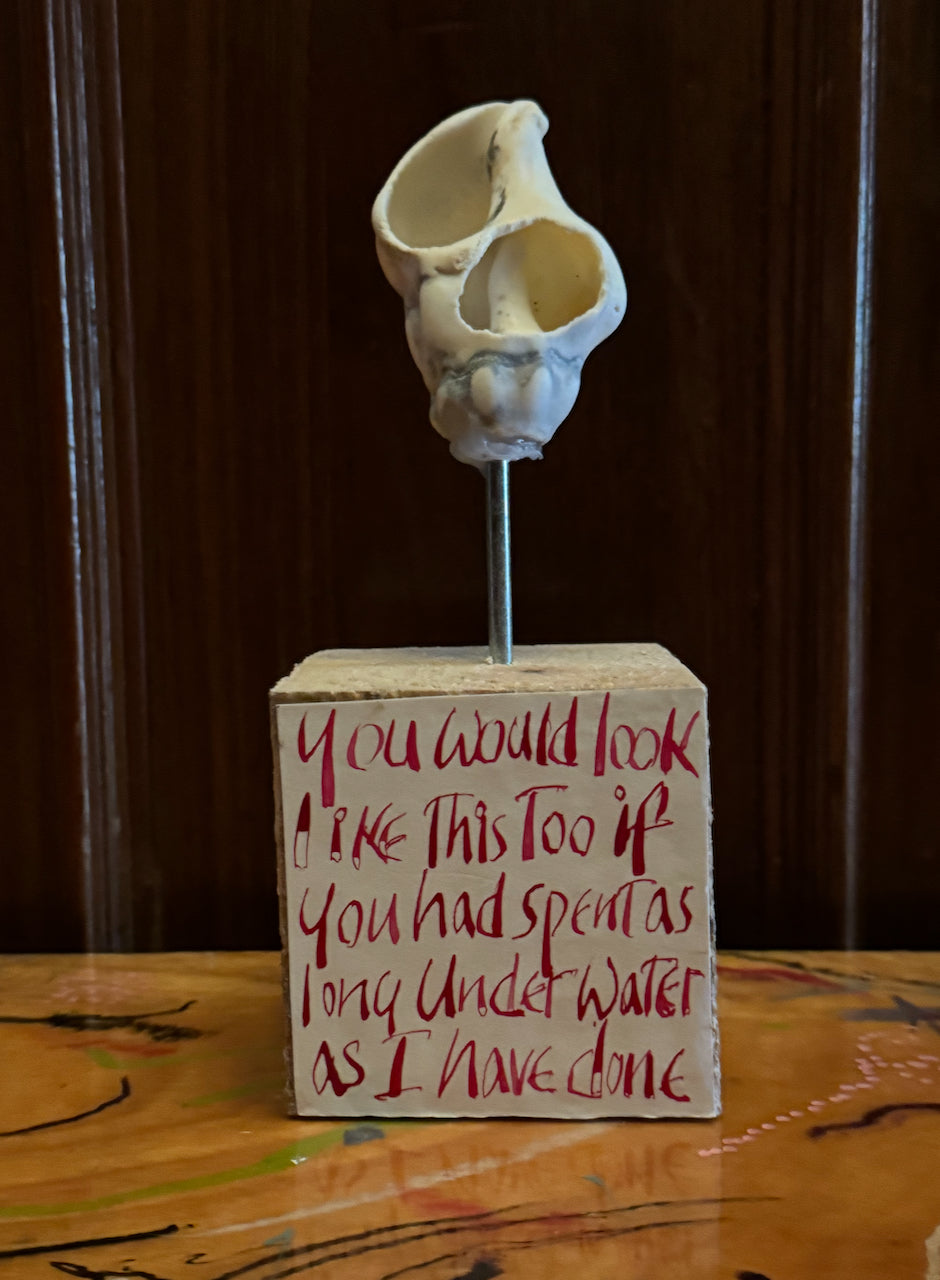 You would look
like This Too if
you had spent as
long Under Water
as I have done